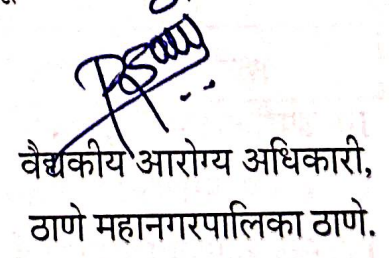 वैद्यकीय आरोग्य अधिकारी,
ठाणे महानगरपालिका ठाणे.